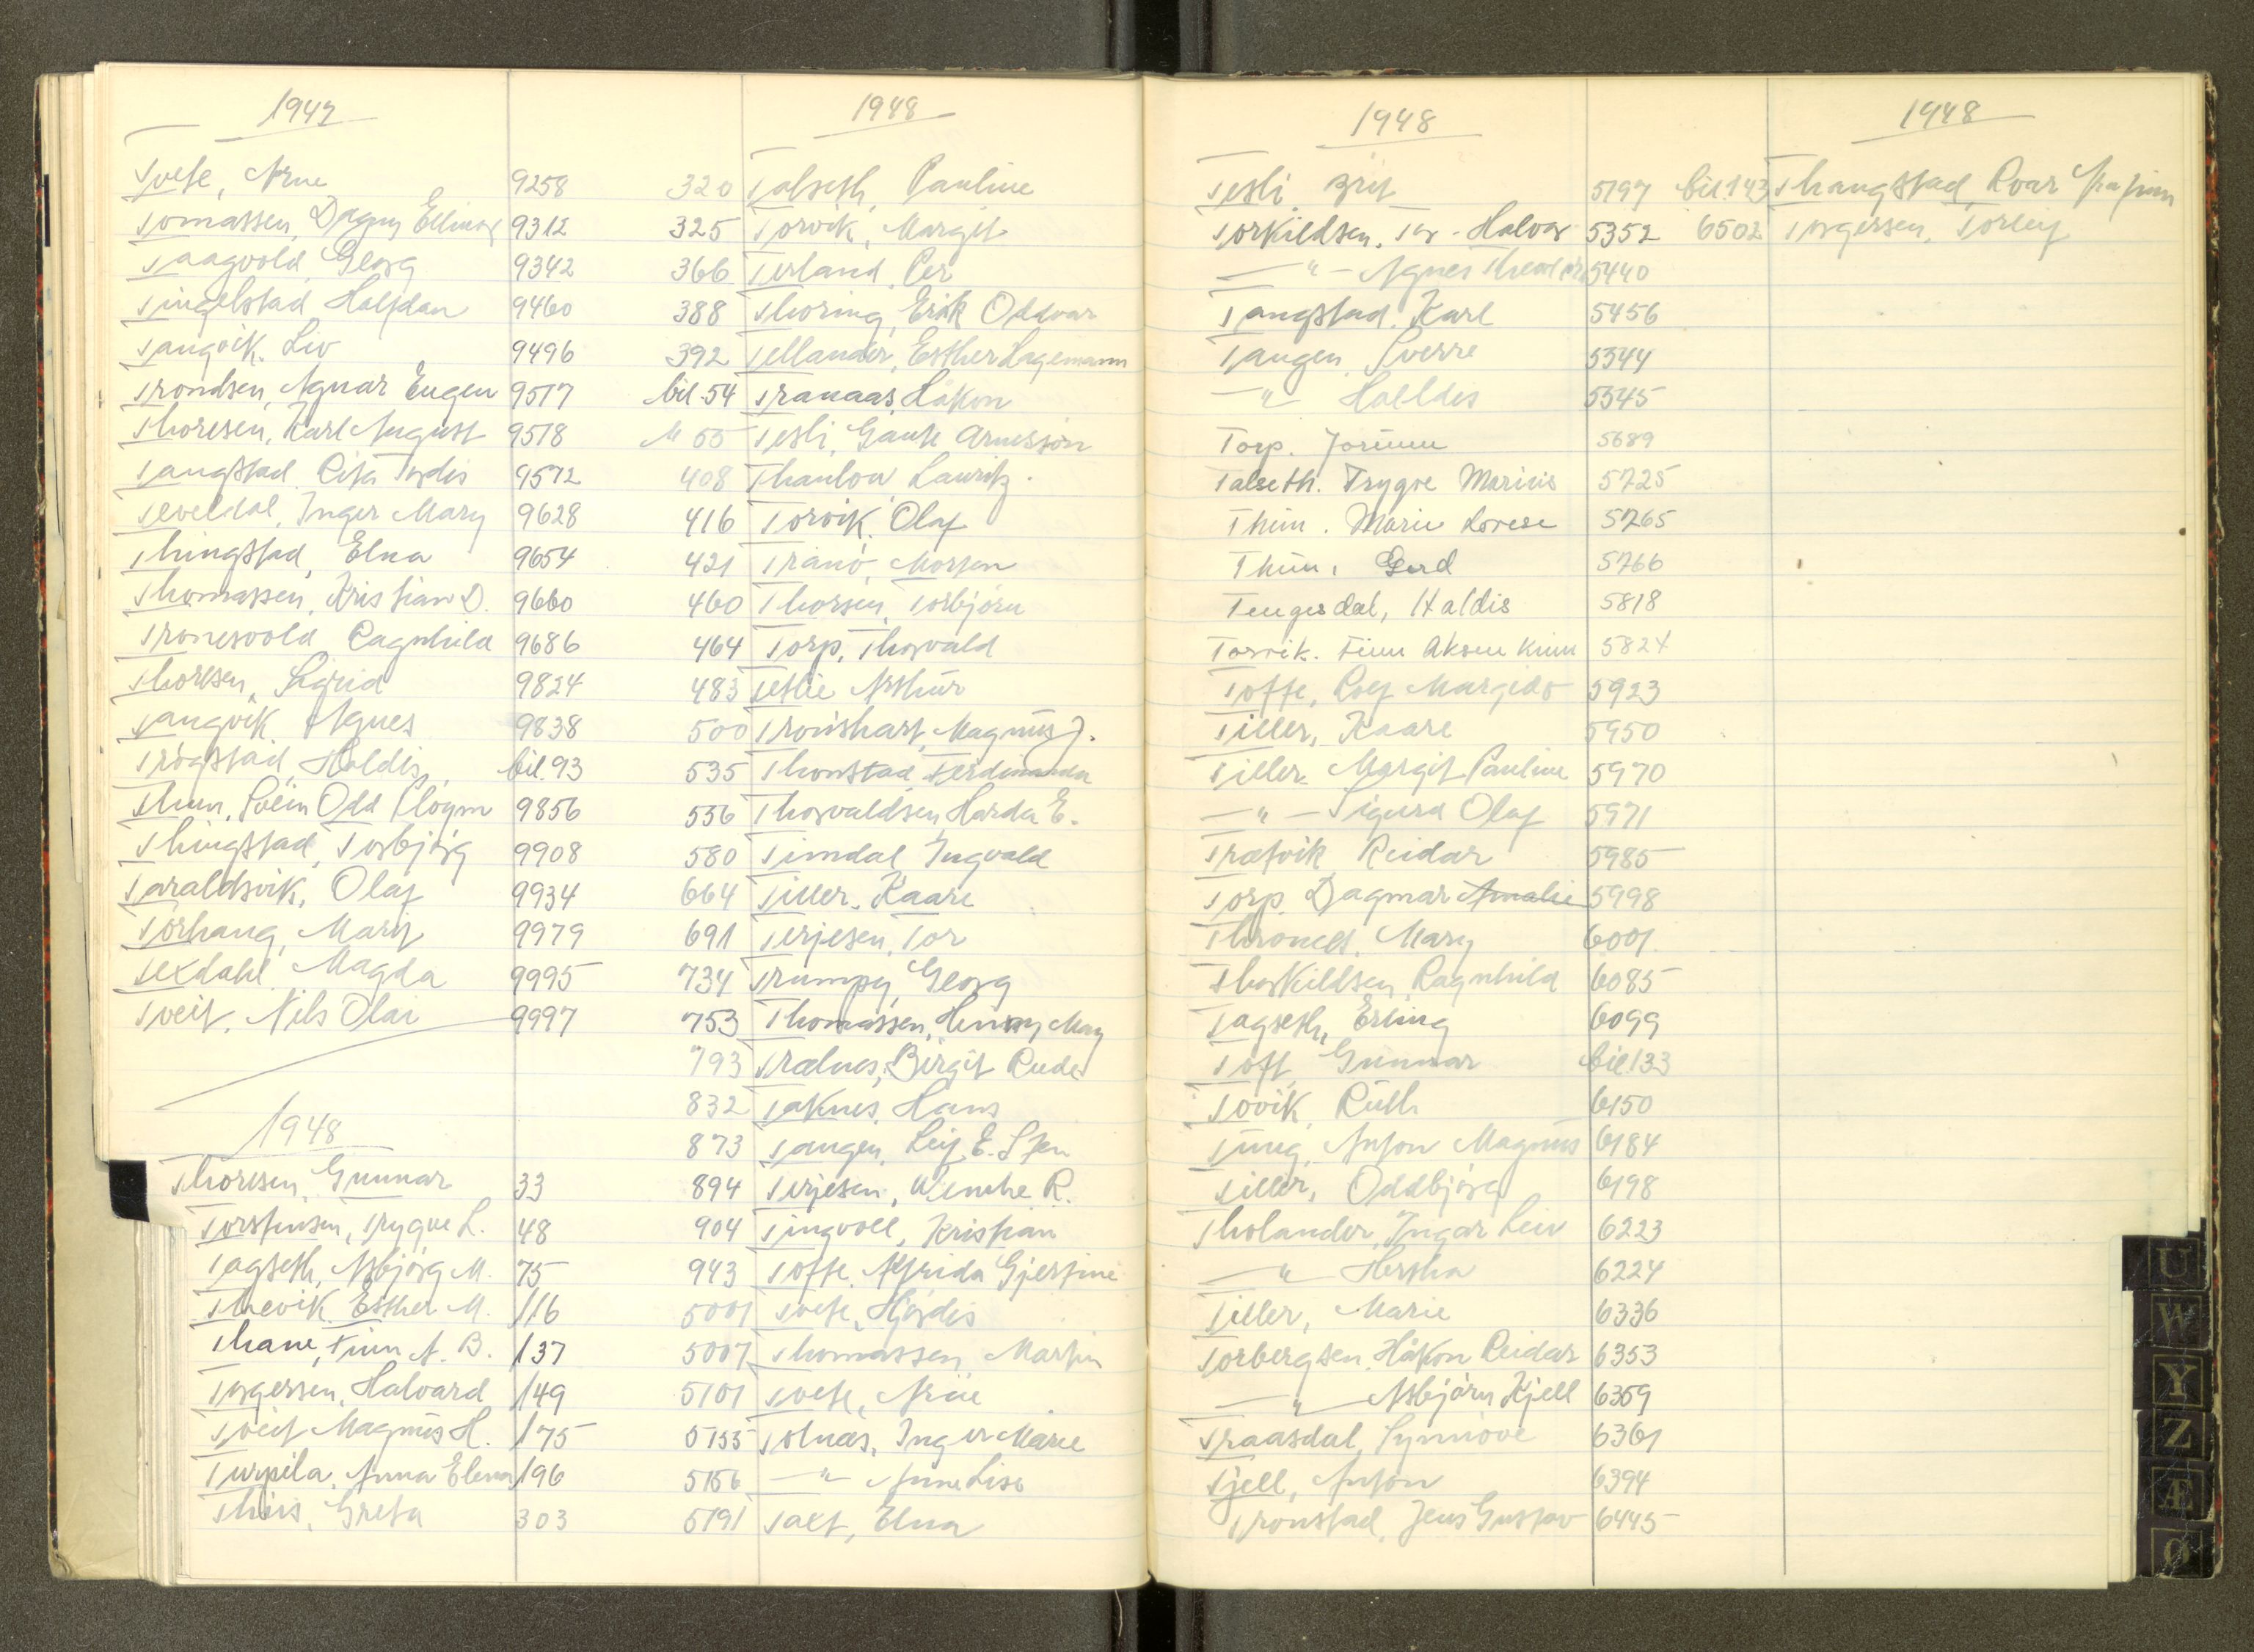 1947
Tvete, Arne 9258
Tomassen, Dagny Ellinor 9312
Taagvold, Georg 9342
Tingelstad Halfdan 9460
Tangvik. Liv 9496
Trondsen, Agnar Eugen 9517
Thoresen, Karl August 9518
Tangstad Rita Tordis 9572
Teveldal, Inger Mary 9628
Thingstad, Elna 9654
Thomassen, Kristian D. 9660
Tronesvold Ragnhild 9686
Thoresen, Sigrid 9824
Tangvik Agnes 9838
Trøgstad, Haldis bil. 93
Thun, Svein Odd 9856
Thingstad, Torbjørg 9908
Taraldsvik, Olaf 9934
Tørhaug, Marit 9979
Texdahl Magda 9995
Tveit, Nils Olai 9997
1948
Thoresen, Gunnar 33
Torstensen, Trygve L. 48
Tagseth, Asbjørg M. 75
Thevik Esther M. 116
Thane, Finn A. B. 137
Torgersen, Halvard 149
Tveit Magnus H. 175
Turpila, Anna Elena 196
Thiis, Greta 303
1948
320 Talseth, Pauline
325 Torvik, Margit
366 Terland, Per
388 Thoring, Erik Oddvar
392 Tellander, Esther Hagemann
bil 54 Tranaas, Håkon
Tesli, Gaute Arnesson
408 Thaulow Lauritz
416 Torvik, Olaf
421 Tranø, Morten
460 Thorsen, Torbjørn
464 Torp, Thorvald
483 Teslie Arthur
500 Tronshart, Magnus J.
535 Thonstad Ferdinanda
556 Thorvaldsen, Harda E.
580 Timdal Ingvald
664 Tiller, Kaare
691 Terjesen, Tor
734 Trumpy, Georg
753 Thomassen, Henny May
793 Trælnes, Birgit
832 Taknes, Hans
873 Tangen, Leif E. Sten
894 Terjesen, Wenche R.
904 Tingvoll, Kristian
943 Tofte, Alfrida Gjertine
5001 Tvete, Hjørdis
5007 Thomassen Martin
5101 Tvete, Arne
5155 Tolnæs, Inger Marie
5156 —"— Anne Lise
5191 Talt, Elna
1948
Tesli, Brit 5197
Torkildsen, Tor-Halvor 5352
—"— Agnes 5440
Tangstad, Karl 5456
Tangen, Sverre 5544
—"— Halldis 5545
Torp. Jorunn 5689
Talseth. Trygve Marius 5725
Thun. Marie Lovise 5765
Thun, Gerd 5766
Tengesdal, Haldis 5818
Torvik. Finn 5824
Tofte, Rolf Margido 5923
Tiller, Kaare 5950
Tiller Margit Pauline 5970
—"— Sigurd Olaf 5971
Trætvik Reidar 5985
Torp, Dagmar Amalie 5998
Thrones, Mary 6001
Thorkildsen, Ragnhild 6085
Tagseth, Erling 6099
Toft Gunnar bil 133
Tovik, Ruth 6150
Tung, Anton Magnus 6184
Tiller, Oddbjørg 6198
Tholander, Ingar Leiv 6223
—"— Hertha 6224
Tiller, Marie 6336
Torbergsen, Håkon Reidar 6353
—"— Asbjørn Kjell 6359
Traasdal, Synnøve 6361
Tjell, Anton 6394
Tronstad, Jens Gustav 6445
1948
bil. 143 Thangstad, Roar
6502 Torgersen, Torleif
U
W
Y
Z
Æ
Ø